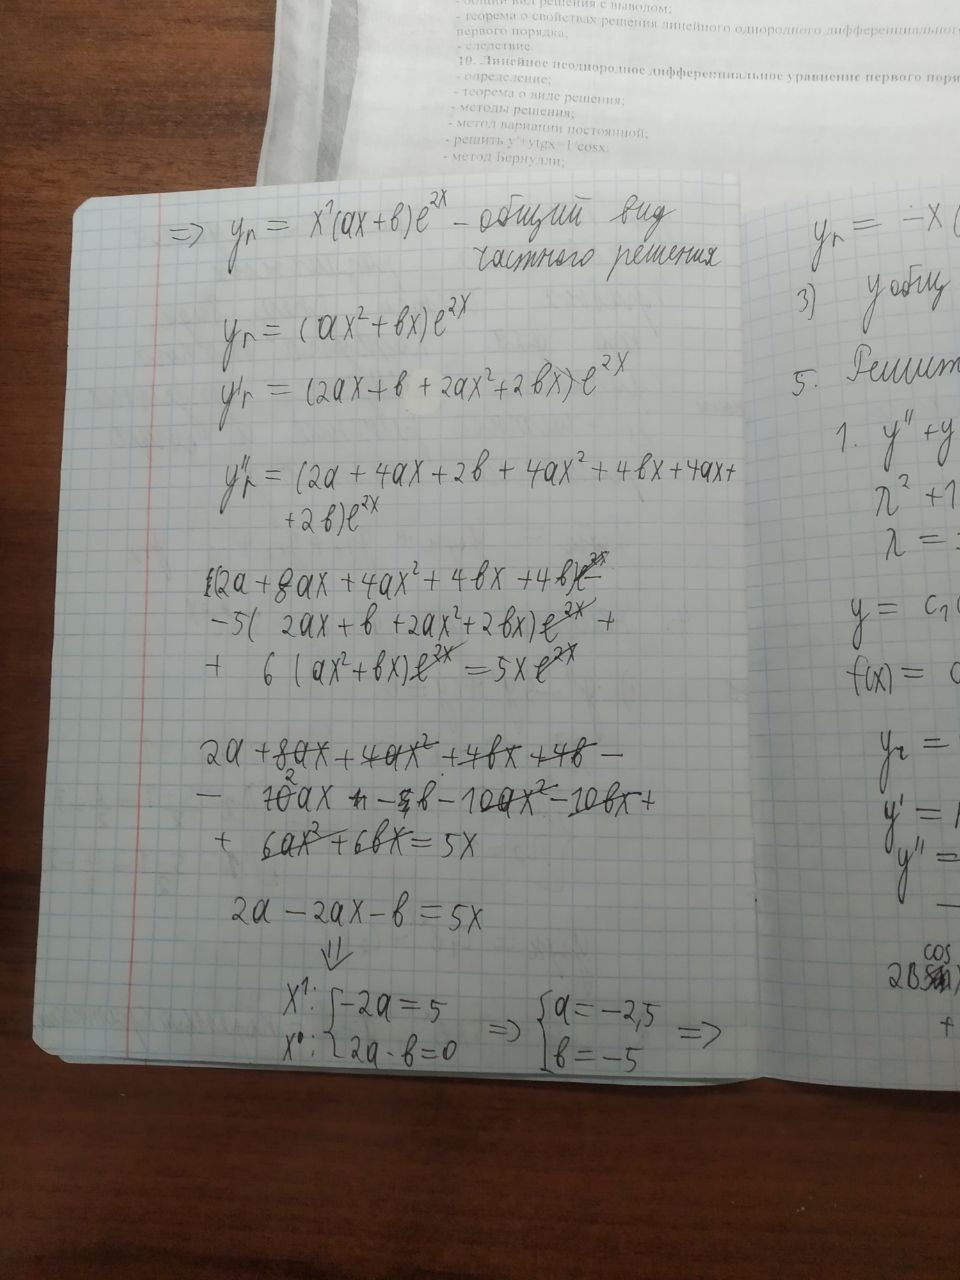 - общий вид решения с выводом;
- теорема о свойствах решения линейного однородного дифференциального
первого порядка;
- следствие.
10. Линейное неоднородное дифференциальное уравнение первого поря
- определение;
- теорема о виде решения;
- методы решения;
- метод вариации постоянной;
- решить y'+ytgx=1/cosx.
- метод Бернулли;
=> yr = x¹(ax+b)e^2x - общий вид
частного решения
yr = (ax²+bx)e^2x
y'r = (2ax+b+2ax²+2bx)e^2x
y''r = (2a+4ax+2b+4ax²+4bx+4ax+
+2b)e^2x
(2a+8ax+4ax²+4bx+4b)e^2x-
-5(2ax+b+2ax²+2bx)e^2x+
+6(ax²+bx)e^2x=5xe^2x
2a+8ax+4ax²+4bx+4b-
- 2ax - b-10ax²-10bx+
+6ax²+6bx=5x
2a-2ax-b=5x
⇓
x¹: {-2a=5
x⁰: {2a-b=0
=> {a=-2,5
{b=-5 =>
yr = -x(
3) y общ
5. Решит
1. y''+y
λ²+1
λ =
y = c₁
f(x) =
yr =
y' =
y'' =
cos
2B
+